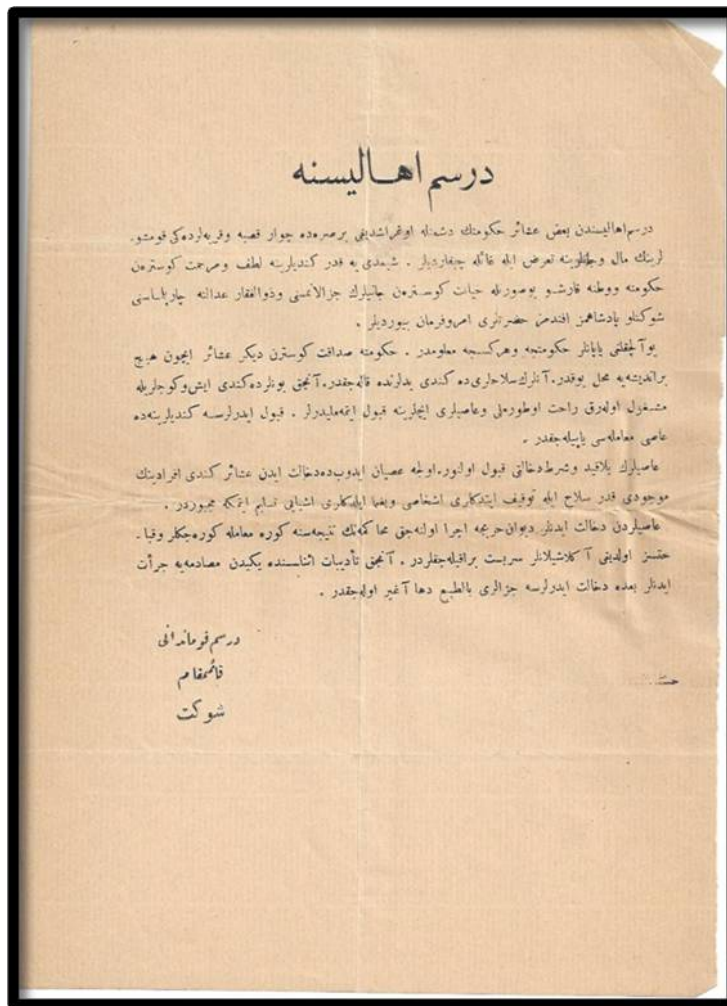 درسم اهـالیسنه
درسم اهالیسندن بعض عشائر حکومتك دشمنله اوغراشدیغی برصره‌ده جوار قصبه وقریه‌لرده‌کی قومشو.
لرینك مال وجانلرینه تعرض ایله غائله چیقاردیلر . شیمدی یه قدر کندیلرینه لطف ومرحمت کوسترەن
حکومته ووطنه قارشو بوصورتله خیانت کوسترەن جانیلرك جزالانمسنی وذوالفقار عدالته چارپلماسنی
شوکتلو پادشاهمز افندمز حضرتلری امروفرمان بیوردیلر .
بوآلچقلغی یاپانلر حکومتجه وهرکسجه معلومدر . حکومته صداقت کوسترن دیکر عشائر ایچون هیچ
براندیشه‌یه محل یوقدر. آنلرك سلاحلری ده کندی یدلرنده قاله‌جقدر. آنجق بونلرده کندی ایش وکوجلریله
مشغول اوله‌رق راحت اوطورملی وعاصیلری ایچلرینه قبول ایتمه‌ملیدرلر . قبول ایدرلرسه کندیلرینه‌ده
عاصی معامله‌سی یاپیله‌جقدر .
عاصیلرك بلاقید وشرط دخالتی قبول اولنور. اولجه عصیان ایدوب‌ده دخالت ایدن عشائر کندی افرادینك
موجودی قدر سلاح ایله توقیف ایتدکلری اشخاصی ویغما ایله‌دکلری اشیایی تسلیم ایتمکه مجبوردر .
عاصیلردن دخالت ایدنلر دیوان حربجه اجرا اولنه‌جق محاکمه‌نك نتیجه‌سنه کوره معامله کوره‌جکلر وقبا.
حتسز اولدیغی آکلاشیلانلر سربست براقیله‌جقلردر . آنجق تأدیبات اثناسنده یکیدن مصادمه‌یه جرأت
ایدنلر بعده دخالت ایدرلرسه جزالری بالطبع دها آغیر اوله‌جقدر .
درسم قوماندانی
قائممقام
شوکت